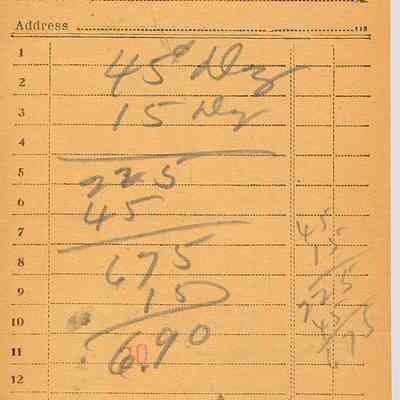 Address
1
2 45¢ Dz
3 15 Dz
4
5 225
6 45
7
8 675
9 15
10
11 6.90
12
45
15
225
45
6.75